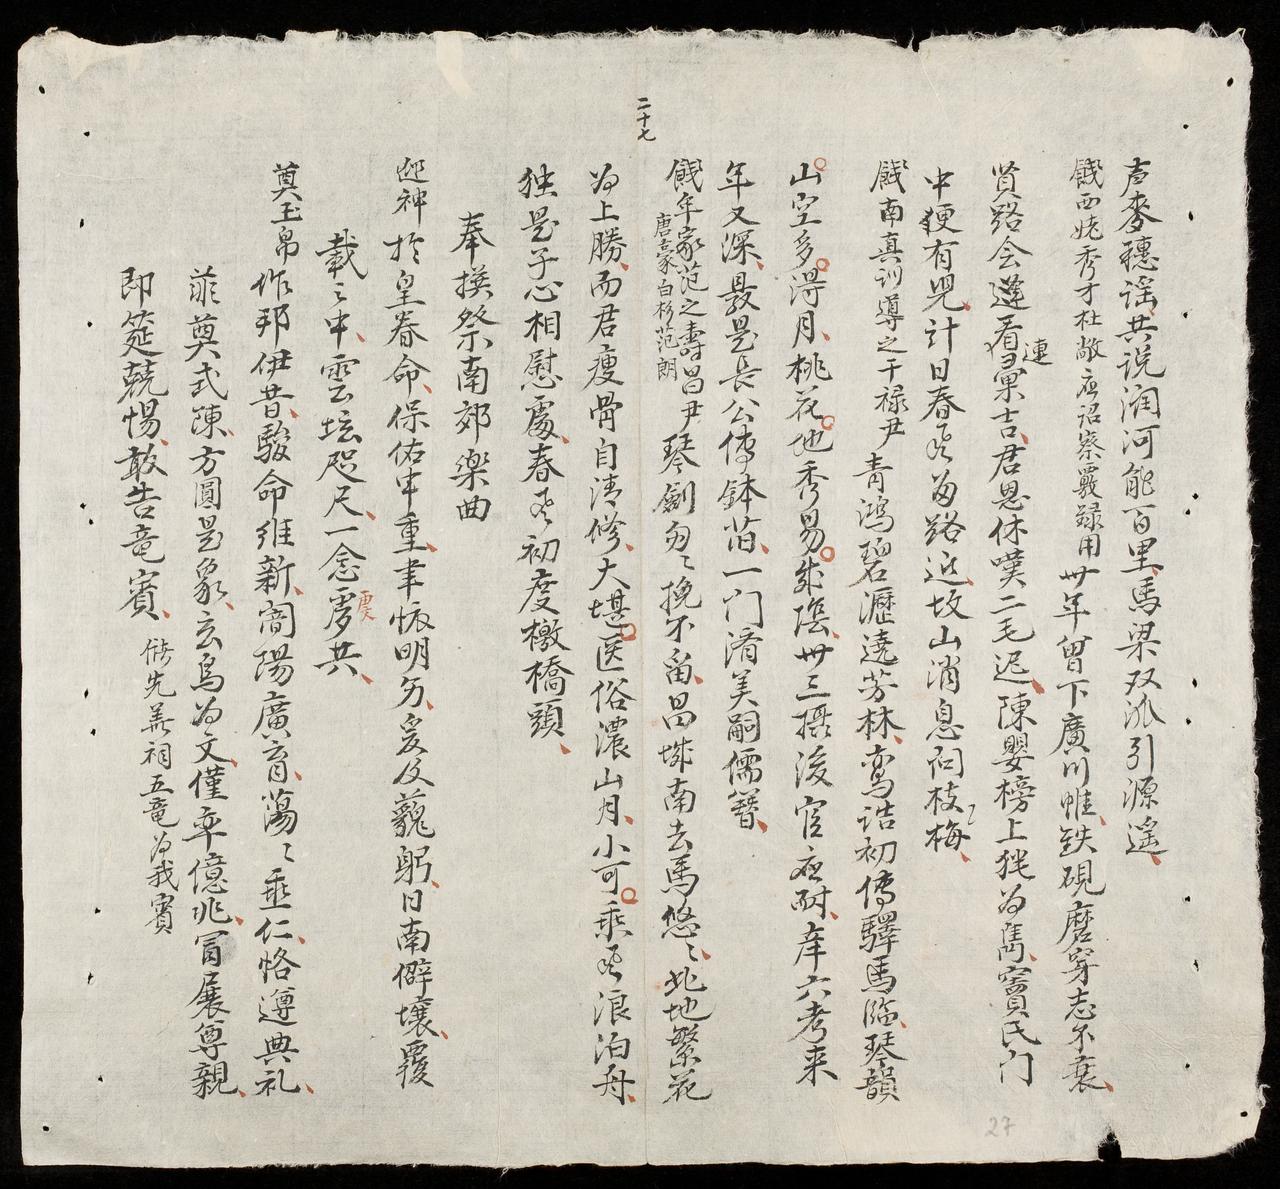 二十七
声麥穗謡共说润河能百里馬梁双派引源遥
餞西姥秀才杜敞应詔察覈録用 卅年曾下廣川帷鉄硯磨穿志不衰
贤路会逢看彙吉君恩休嘆二毛迟陳嬰榜上狌为雋竇民门
連
中狌有児計日春风为路近故山消息问枝梅
餞南真训導之干禄尹 青鴻碧瀝遶芳林鸞誥初傳驛馬臨琴韻
山空多得月桃花地秀易成陰卅三摂後官应耐庠六考来
年又深最是長公傳鉢萡一门済美嗣儒簪
餞年家范之壽昌尹 琴劍匆〻挽不畄昌城南去馬悠〻北地繁花
唐豪白杉范朗
为上勝而君瘦骨自清修大堪医俗濃山月小可乘风浪泊舟
独是子心相慰處春风初度檄橋頭
奉撰祭南郊樂曲
迎神 於皇眷命保佑申重聿恢明匇爰及藐躬日南僻壤覆
載之中雲坛咫尺一念虔共
虔
奠玉帛 作邦伊昔駿命維新闿陽廣育蕩〻垂仁恪遵典礼
菲奠式陳方圓是象玄烏为文僅率億兆冒展尊親
即筵兢惕敢告竜賓 脩先羙祠五竜为我賓
27